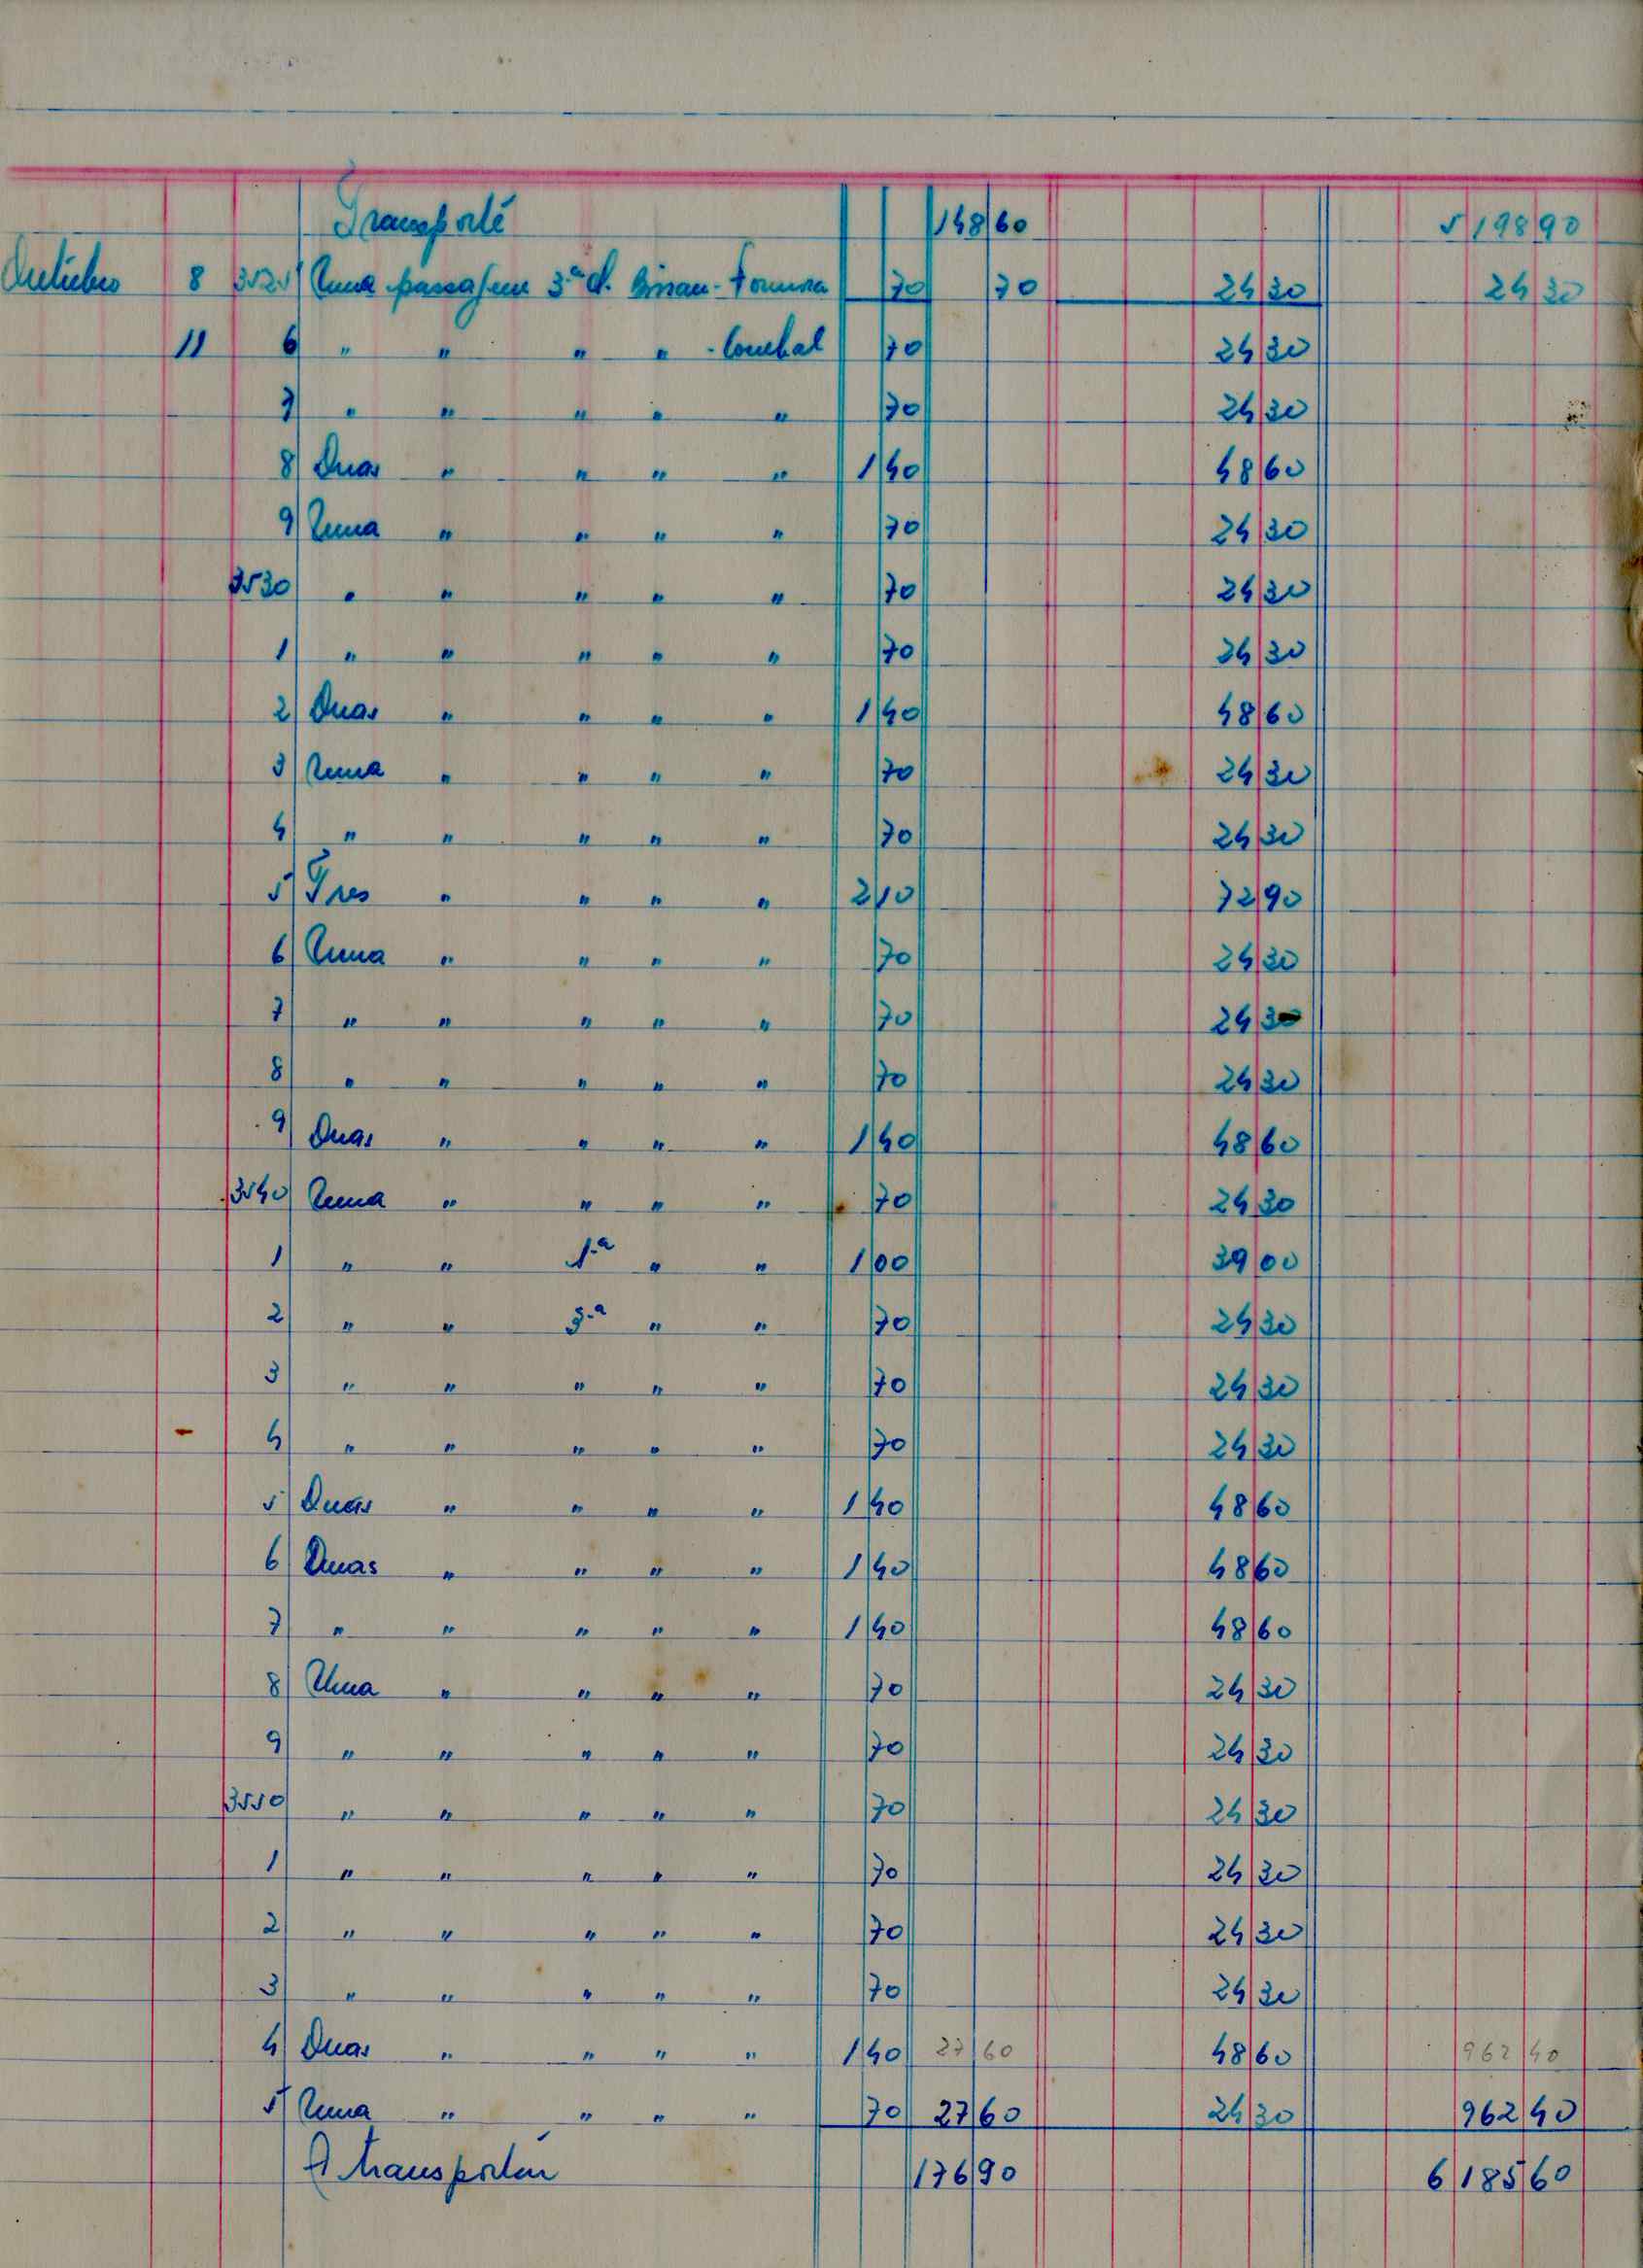 Transporte 148 60 5 198 90
Outubro 8 3525 Uma passagem 3.ª cl. Bissau - Formosa 70 70 24 30 24 30
11 6 " " " " - Corubal 70 24 30
7 " " " " " 70 24 30
8 Duas " " " " 1 40 48 60
9 Uma " " " " 70 24 30
3530 " " " " " 70 24 30
1 " " " " " 70 24 30
2 Duas " " " " 1 40 48 60
3 Uma " " " " 70 24 30
4 " " " " " 70 24 30
5 Tres " " " " 2 10 72 90
6 Uma " " " " 70 24 30
7 " " " " " 70 24 30
8 " " " " " 70 24 30
9 Duas " " " " 1 40 48 60
3540 Uma " " " " 70 24 30
1 " " 1.ª " " 1 00 39 00
2 " " 3.ª " " 70 24 30
3 " " " " " 70 24 30
4 " " " " " 70 24 30
5 Duas " " " " 1 40 48 60
6 Duas " " " " 1 40 48 60
7 " " " " " 1 40 48 60
8 Uma " " " " 70 24 30
9 " " " " " 70 24 30
3550 " " " " " 70 24 30
1 " " " " " 70 24 30
2 " " " " " 70 24 30
3 " " " " " 70 24 30
4 Duas " " " " 1 40 27 60 48 60 962 40
5 Uma " " " " 70 27 60 24 30 962 40
A transportar 176 90 6 185 60